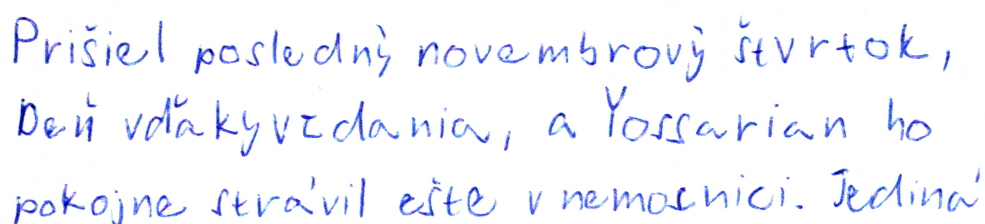 Prišiel posledný novembrový štvrtok,
Deň vďakyvzdania, a Yossarian ho
pokojne strávil ešte v nemocnici. Jediná